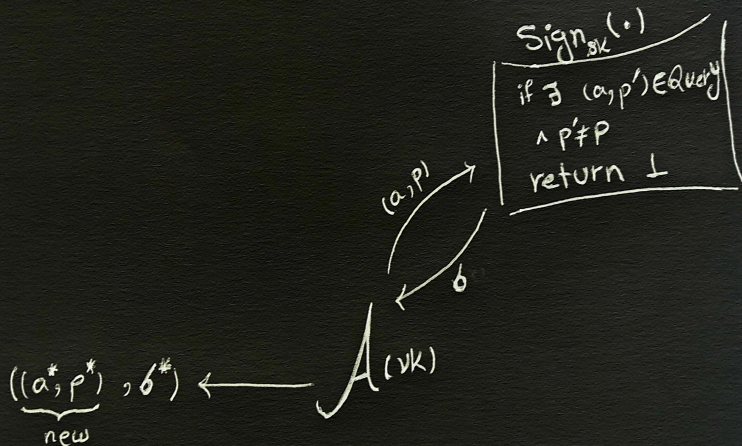 Sign_sk(·)
if ∃ (a,p')∈Query
∧ p'≠p
return ⊥
(a,p)
σ
A(vk)
((a*,p*),σ*)
new